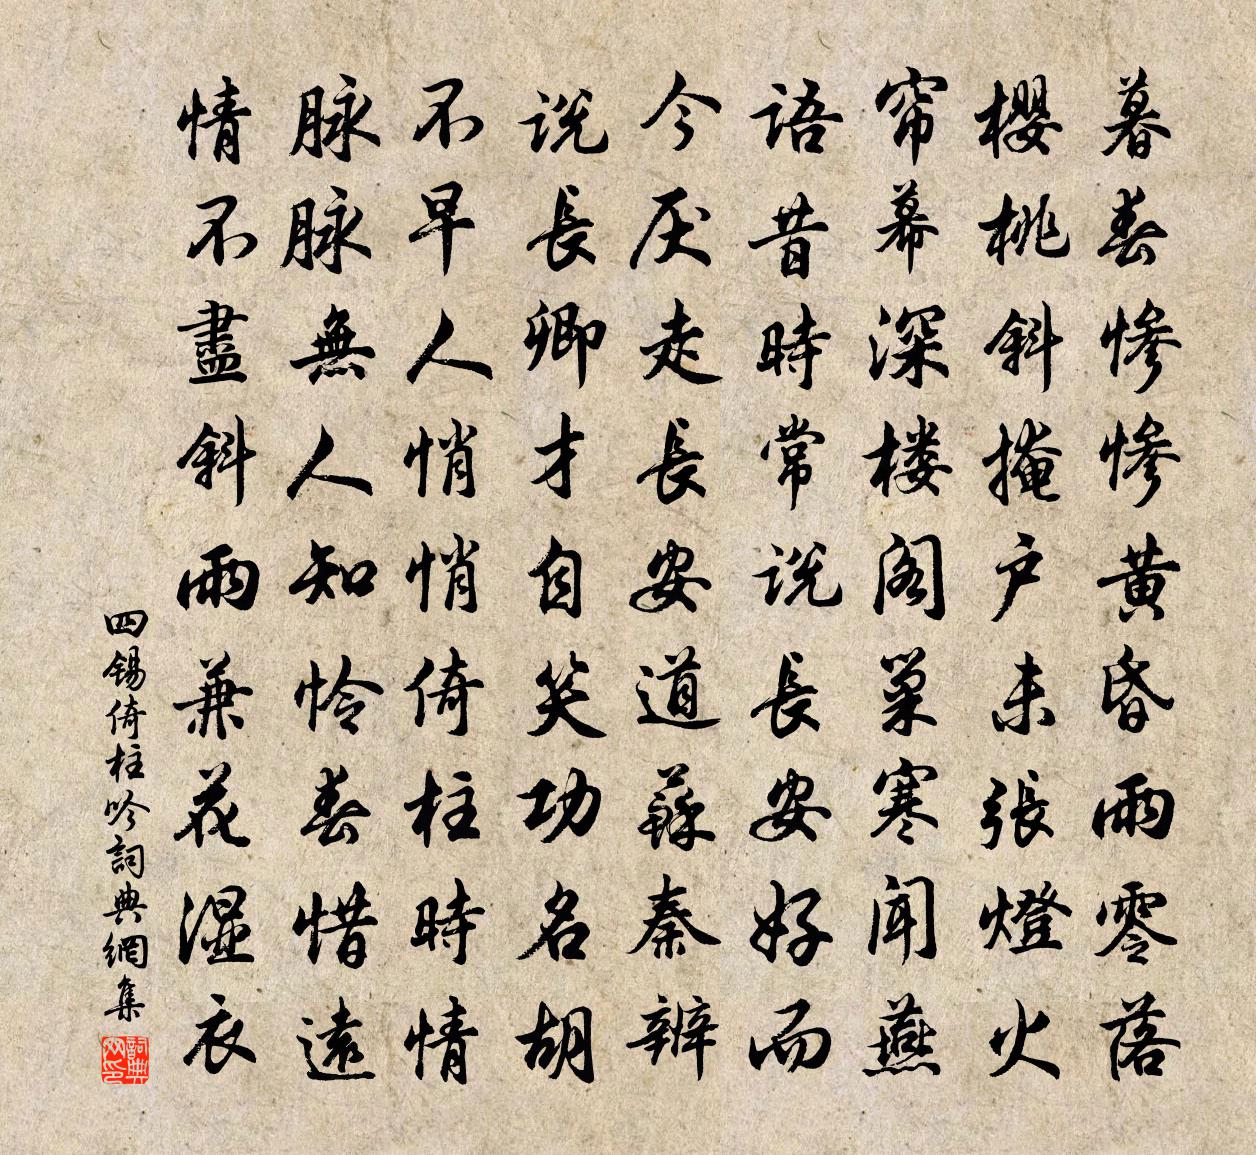 暮春惨惨黄昏雨零落
櫻桃斜掩户未張燈火
帘幕深楼阁巢寒闻燕
語昔時常说長安好而
今厌走長安道蘇秦辨
说長卿才自笑功名胡
不早人悄悄倚柱時情
脉脉無人知怜春惜遠
情不盡斜雨兼花湿衣
四錫倚柱吟詞典網集
詞典网印